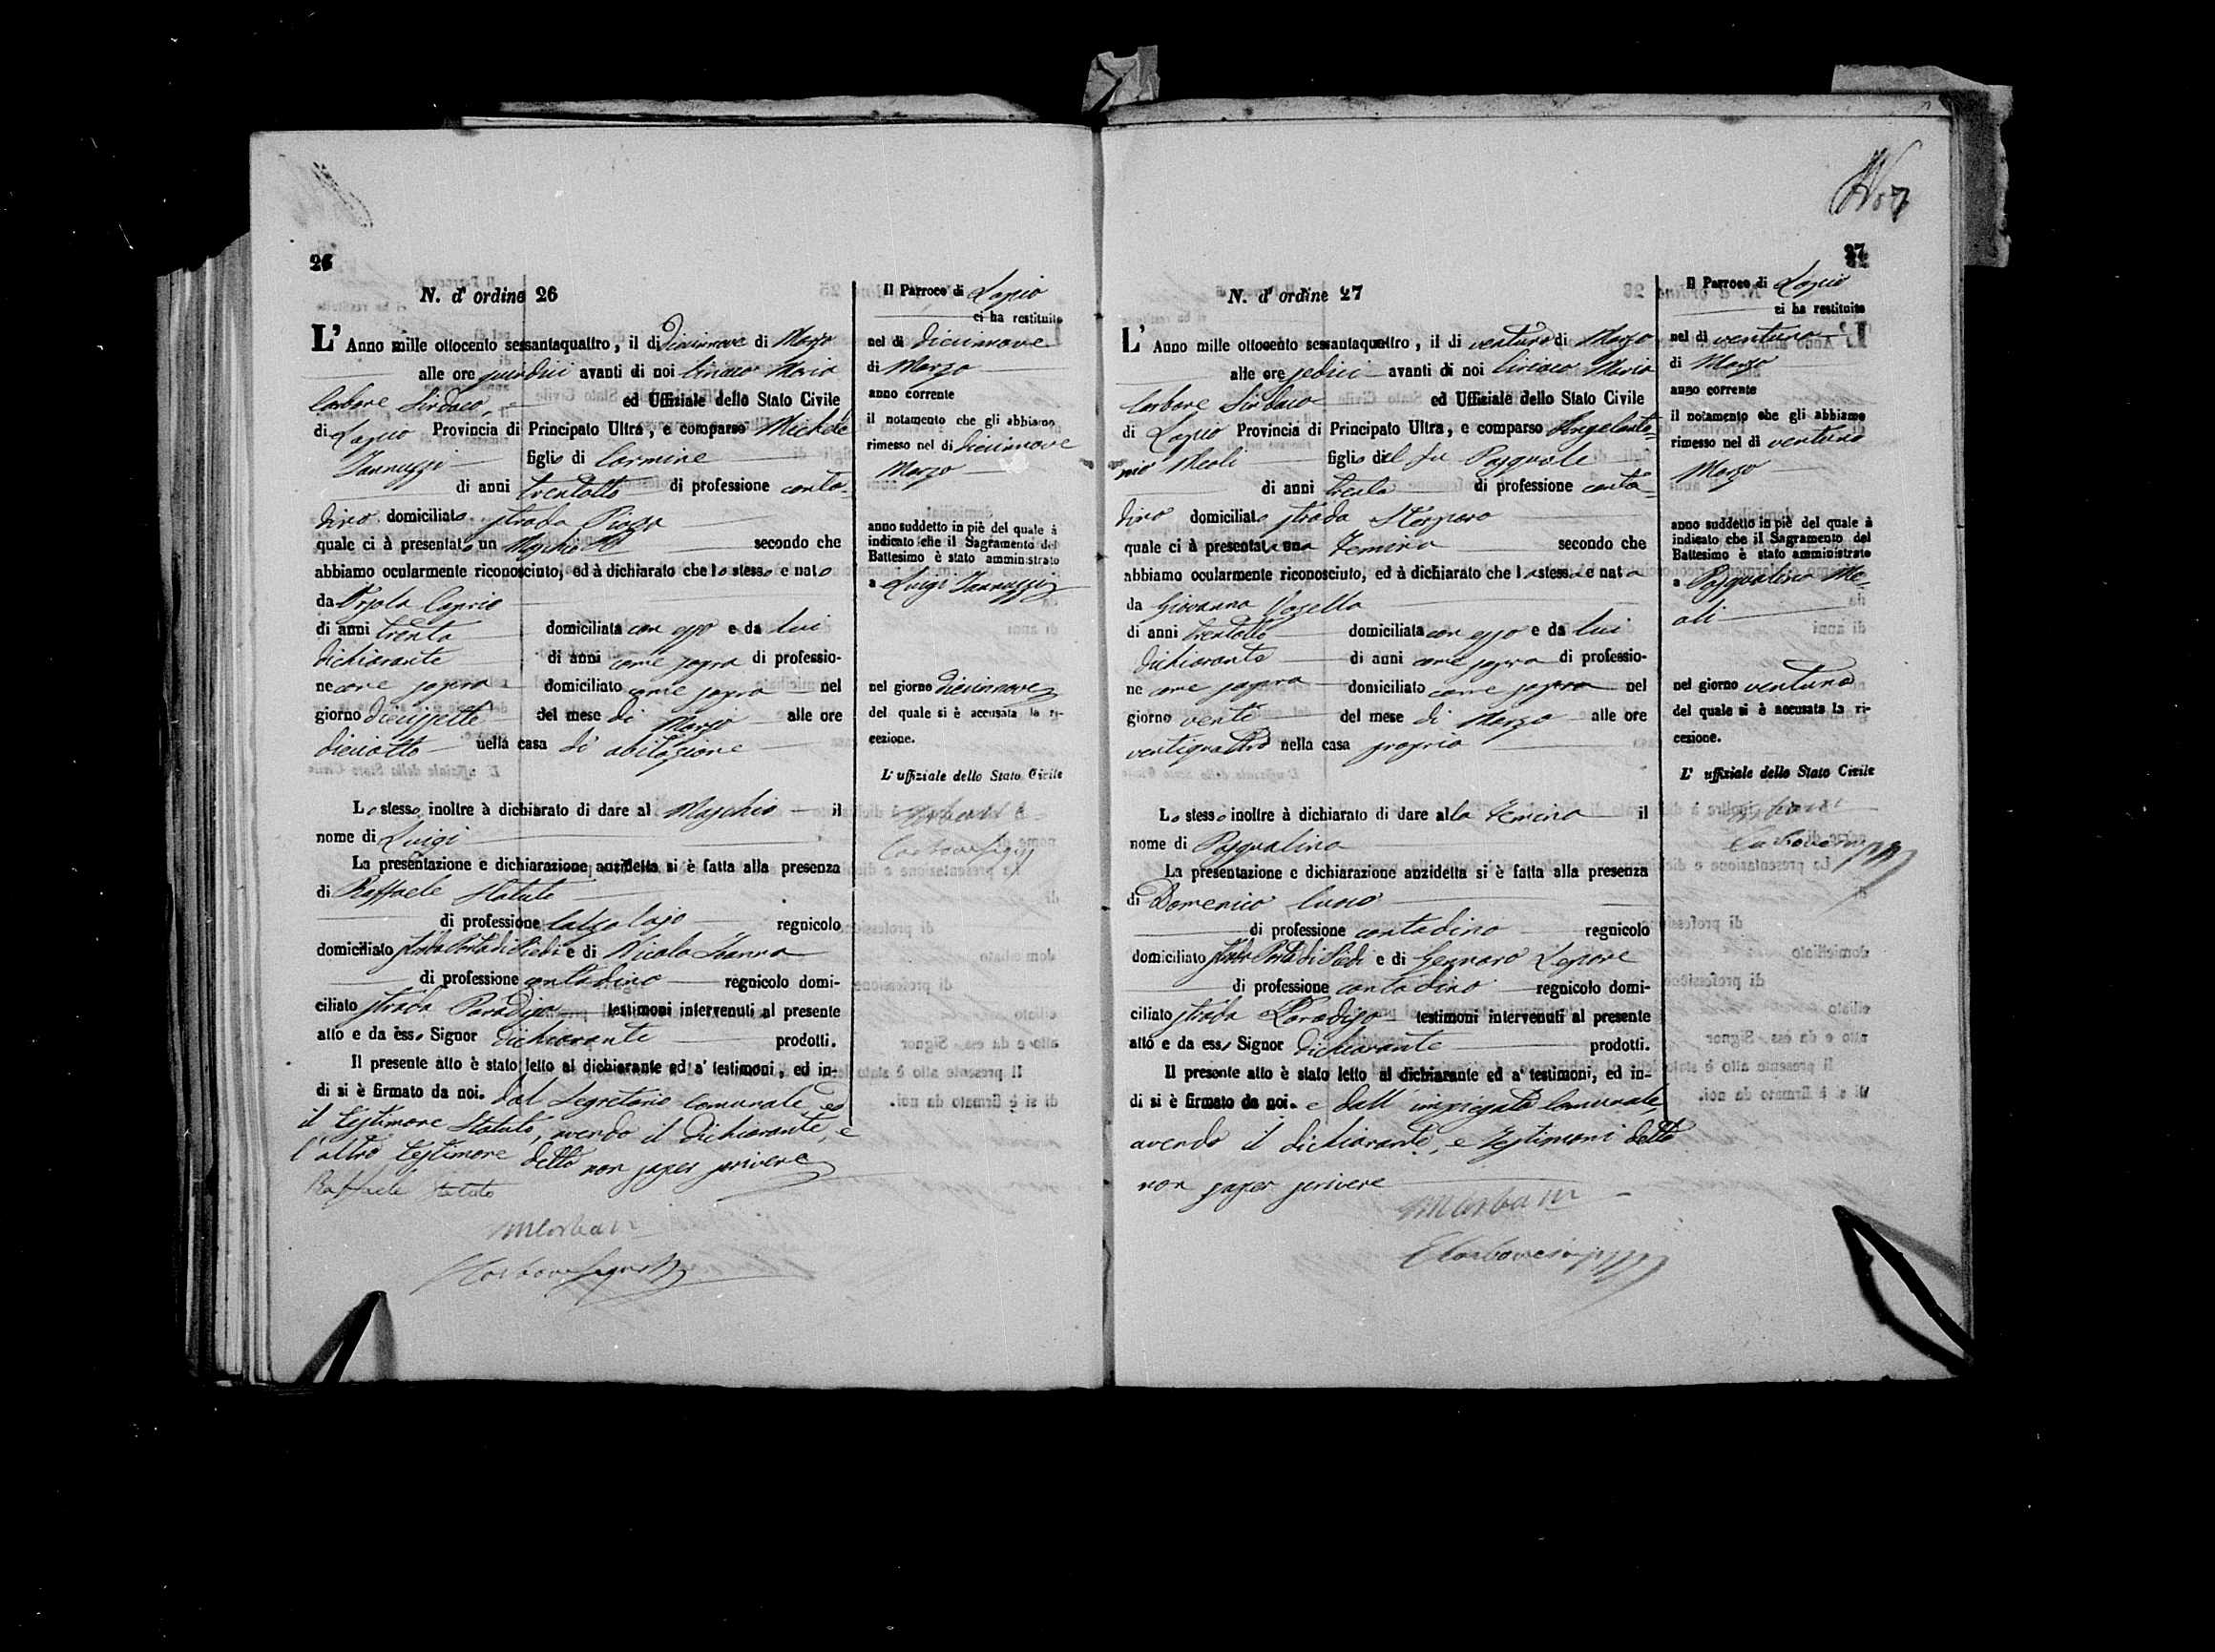 26
N. d' ordine 26
L' Anno mille ottocento sessantaquattro, il di diecinnove di Marzo
alle ore quindici avanti di noi Ciriaco Maria
Carbone Sindaco, ed Uffiziale dello Stato Civile
di Lapio Provincia di Principato Ultra, e comparso Michele
Iannuzzi figlio di Carmine
di anni trentotto di professione conta=
dino domiciliato strada Piazza
quale ci à presentato un Maschio secondo che
abbiamo ocularmente riconosciuto, ed à dichiarato che lo stesso e nato
da Orsola Caprio
di anni trenta domiciliata con esso e da lui
dichiarante di anni come sopra di professio-
ne come sopra domiciliato come sopra nel
giorno diecissette del mese di Marzo alle ore
dieciotto nella casa di abitazione
Lo stesso inoltre à dichiarato di dare al Maschio il
nome di Luigi
La presentazione e dichiarazione anzidetta si è fatta alla presenza
di Raffaele Statuto
di professione calzolajo regnicolo
domiciliato strada Porta di Piedi e di Nicola
di professione contadino regnicolo domi-
ciliato strada Paradiso testimoni intervenuti al presente
atto e da esso Signor dichiarante prodotti.
Il presente atto è stato letto al dichiarante ed a' testimoni, ed in-
di si è firmato da noi. dal Segretario Comunale ed
il testimone Statuto, avendo il dichiarante, e
l'altro testimone detto non saper scrivere
Raffaele Statuto
Il Parroco di Lapio
ci ha restituito
nel di diecinnove
di Marzo
anno corrente
il notamento che gli abbiamo
rimesso nel di diecinnove
Marzo
anno suddetto in piè del quale à
indicato che il Sagramento del
Battesimo è stato amministrato
a Luigi Iannuzzi
nel giorno diecinnove
del quale si è accusata la ri-
cezione.
L' uffiziale dello Stato Civile
27
N. d' ordine 27
L' Anno mille ottocento sessantaquattro, il di ventuno di Marzo
alle ore sedici avanti di noi Ciriaco Maria
Carbone Sindaco ed Uffiziale dello Stato Civile
di Lapio Provincia di Principato Ultra, e comparso Angelanto=
nio Meoli figlio del fu Pasquale
di anni trenta di professione conta=
dino domiciliato strada
quale ci à presentat una Femina secondo che
abbiamo ocularmente riconosciuto, ed à dichiarato che la stessa e nata
da Giovanna Vozella
di anni trentotto domiciliata con esso e da lui
dichiarante di anni come sopra di professio-
ne come sopra domiciliato come sopra nel
giorno venti del mese di Marzo alle ore
ventiquattro nella casa propria
Lo stesso inoltre à dichiarato di dare alla Femina il
nome di Pasqualina
La presentazione e dichiarazione anzidetta si è fatta alla presenza
di Domenico
di professione contadino regnicolo
domiciliato strada Porta di Piedi e di Gennaro Lepore
di professione contadino regnicolo domi-
ciliato strada Paradiso testimoni intervenuti al presente
atto e da esso Signor dichiarante prodotti.
Il presente atto è stato letto al dichiarante ed a' testimoni, ed in-
di si è firmato da noi. e dall' impiegato Comunale,
avendo il dichiarante, e testimoni detto
non saper scrivere
Il Parroco di Lapio
ci ha restituito
nel di ventuno
di Marzo
anno corrente
il notamento che gli abbiamo
rimesso nel di ventuno
Marzo
anno suddetto in piè del quale à
indicato che il Sagramento del
Battesimo è stato amministrato
a Pasqualina Me=
oli
nel giorno ventuno
del quale si è accusata la ri-
cezione.
L' uffiziale dello Stato Civile